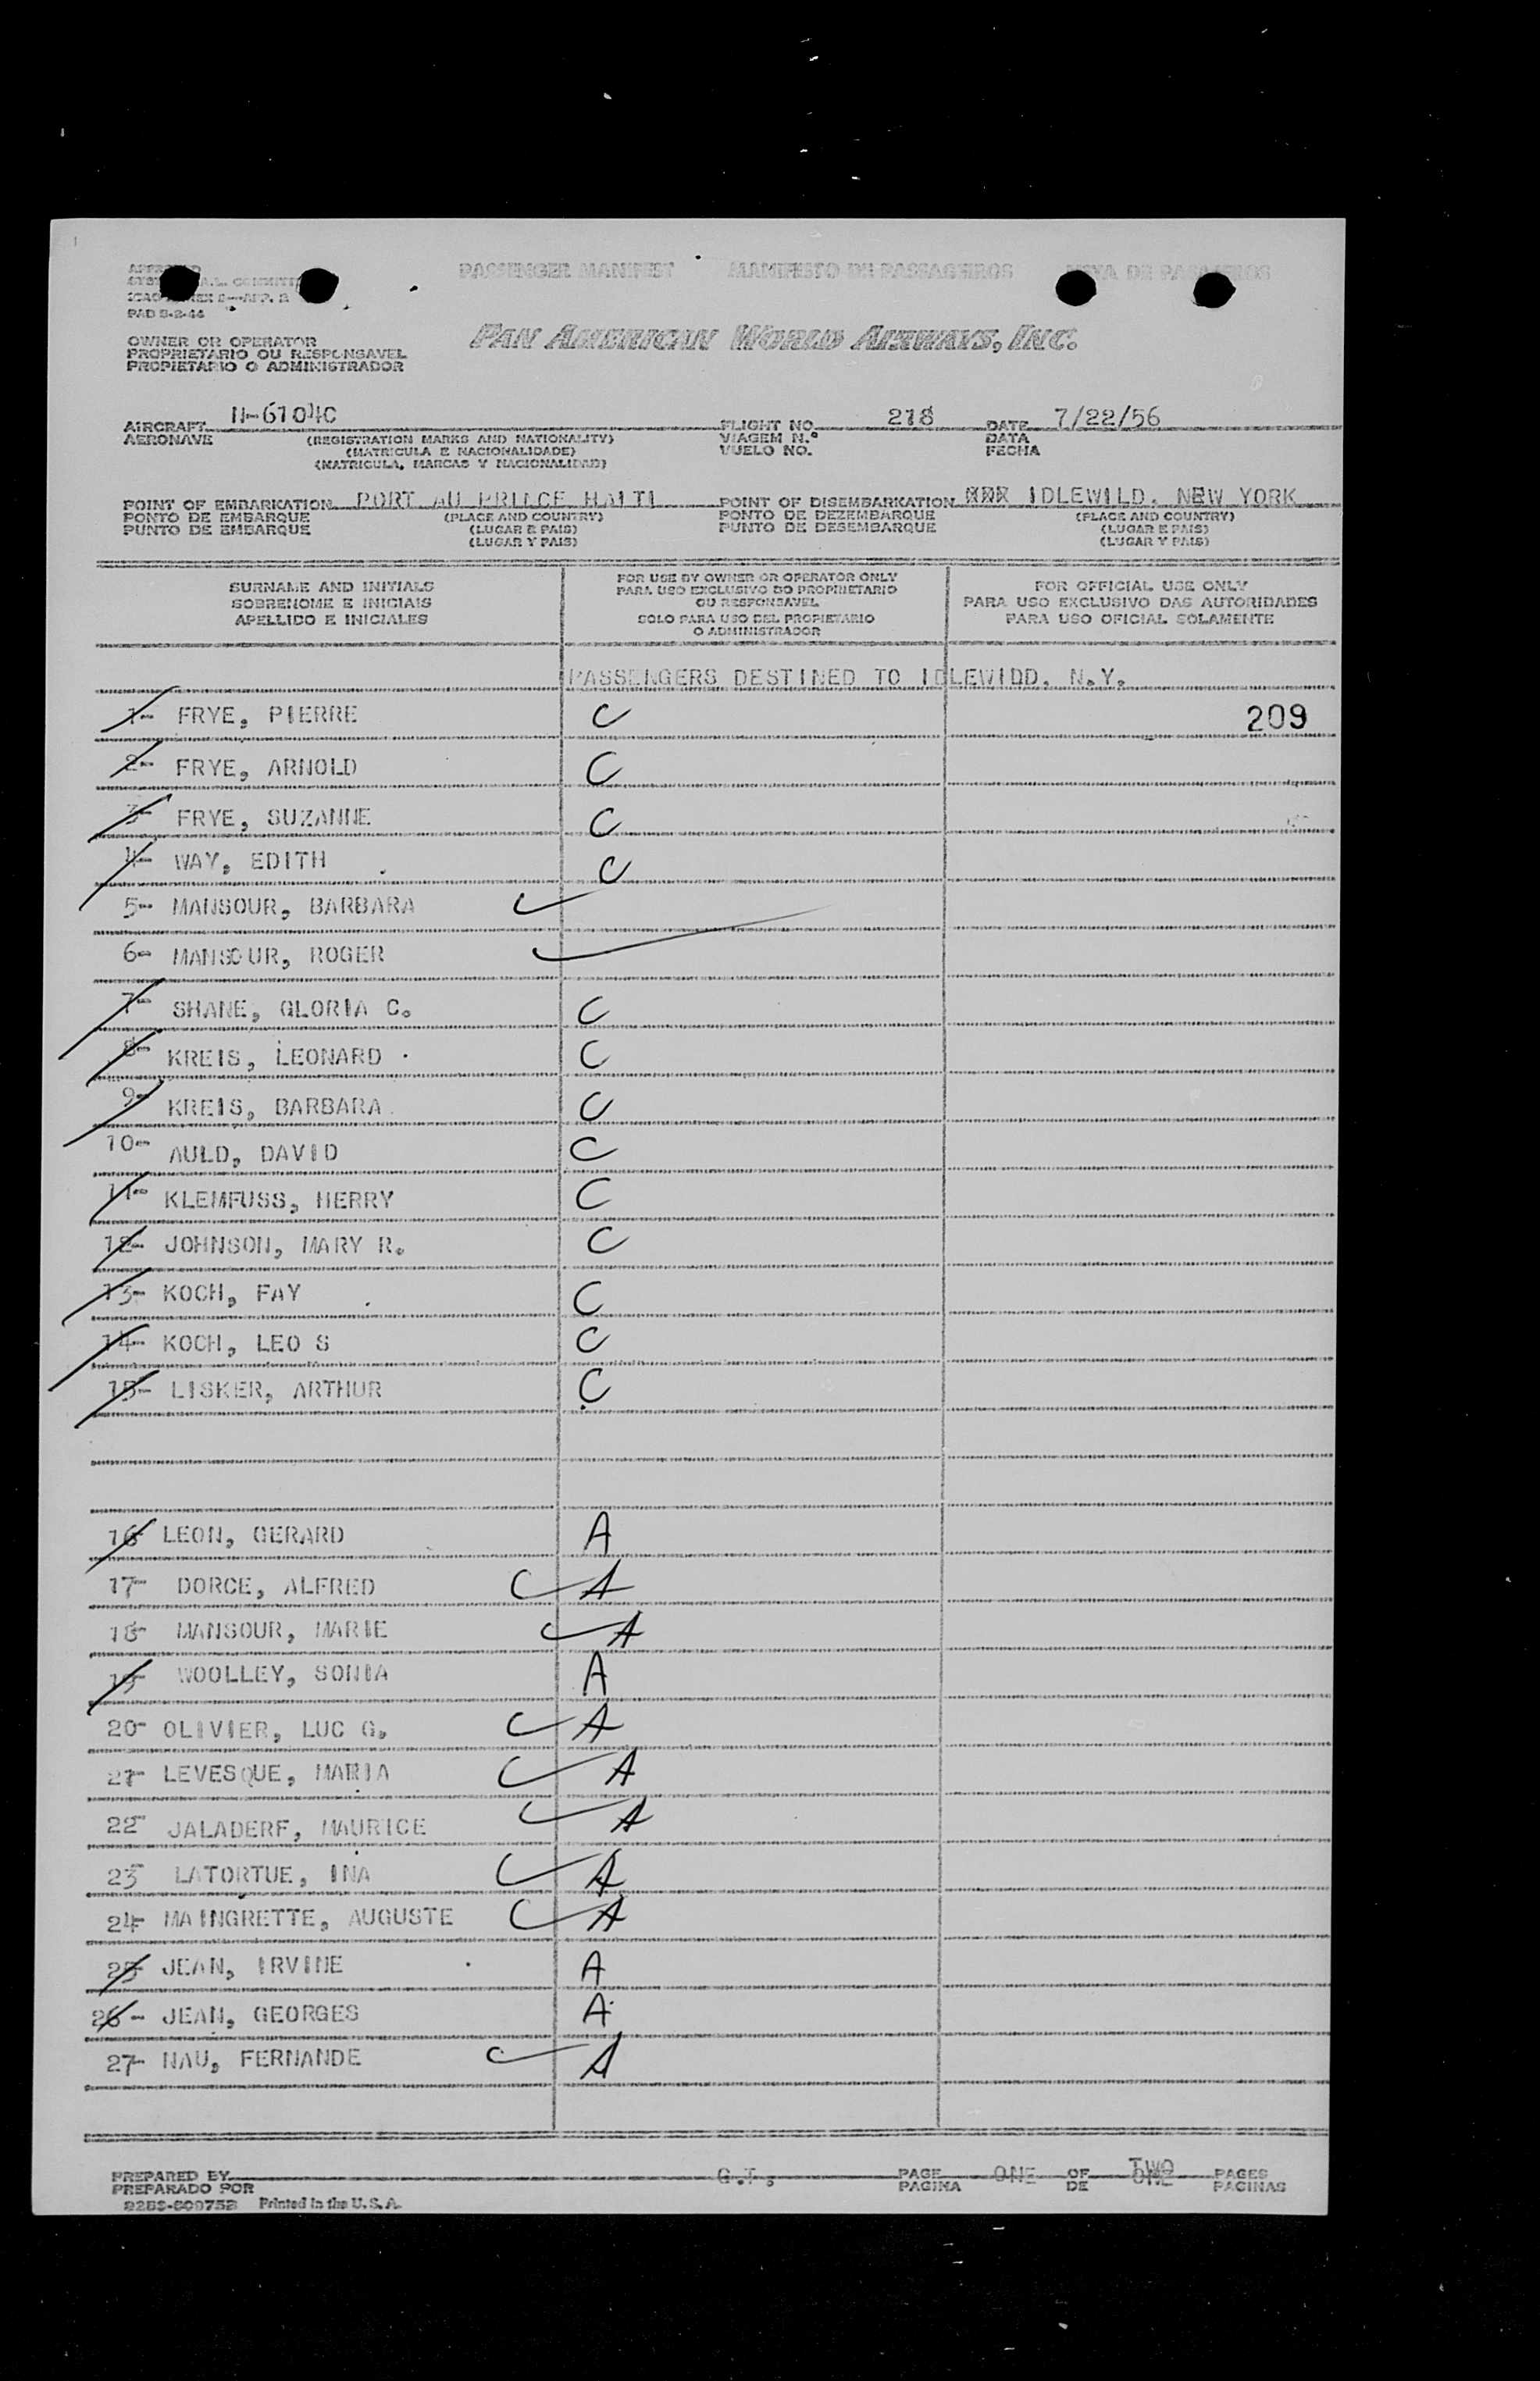 PASSENGER MANIFEST MANIFESTO DE PASSAGEIROS LISTA DE PASAJEROS
PAD 8-2-44
PAN AMERICAN WORLD AIRWAYS, INC.
OWNER OR OPERATOR
PROPRIETARIO OU RESPONSAVEL
PROPIETARIO O ADMINISTRADOR
AIRCRAFT N-6104C FLIGHT NO. 218 DATE 7/22/56
AERONAVE (REGISTRATION MARKS AND NATIONALITY) VIAGEM N.º DATA
(MATRICULA E NACIONALIDADE) VUELO NO. FECHA
(MATRICULA, MARCAS Y NACIONALIDAD)
POINT OF EMBARKATION PORT AU PRINCE HAITI POINT OF DISEMBARKATION XXX IDLEWILD. NEW YORK
PONTO DE EMBARQUE (PLACE AND COUNTRY) PONTO DE DEZEMBARQUE (PLACE AND COUNTRY)
PUNTO DE EMBARQUE (LUGAR E PAIS) PUNTO DE DESEMBARQUE (LUGAR E PAIS)
(LUGAR Y PAIS) (LUGAR Y PAIS)
SURNAME AND INITIALS
SOBRENOME E INICIAIS
APELLIDO E INICIALES
FOR USE BY OWNER OR OPERATOR ONLY
PARA USO EXCLUSIVO DO PROPRIETARIO
OU RESPONSAVEL
SOLO PARA USO DEL PROPIETARIO
O ADMINISTRADOR
FOR OFFICIAL USE ONLY
PARA USO EXCLUSIVO DAS AUTORIDADES
PARA USO OFICIAL SOLAMENTE
PASSENGERS DESTINED TO IDLEWIDD. N.Y.
1- FRYE, PIERRE C 209
2- FRYE, ARNOLD C
3- FRYE, SUZANNE C
4- WAY, EDITH C
5- MANSOUR, BARBARA
6- MANSOUR, ROGER
7- SHANE, GLORIA C. C
8- KREIS, LEONARD C
9- KREIS, BARBARA C
10- AULD, DAVID C
11- KLEMFUSS, HERRY C
12- JOHNSON, MARY R. C
13- KOCH, FAY C
14- KOCH, LEO S C
15- LISKER, ARTHUR C
16- LEON, GERARD A
17- DORCE, ALFRED A
18- MANSOUR, MARIE A
19- WOOLLEY, SONIA A
20- OLIVIER, LUC G. A
21- LEVESQUE, MARIA A
22- JALADERF, MAURICE A
23 LATORTUE, INA A
24- MAINGRETTE, AUGUSTE A
25- JEAN, IRVINE A
26- JEAN, GEORGES A
27- NAU, FERNANDE A
PREPARED BY G.T. PAGE ONE OF TWO PAGES
PREPARADO POR PAGINA DE PAGINAS
Printed in the U. S. A.